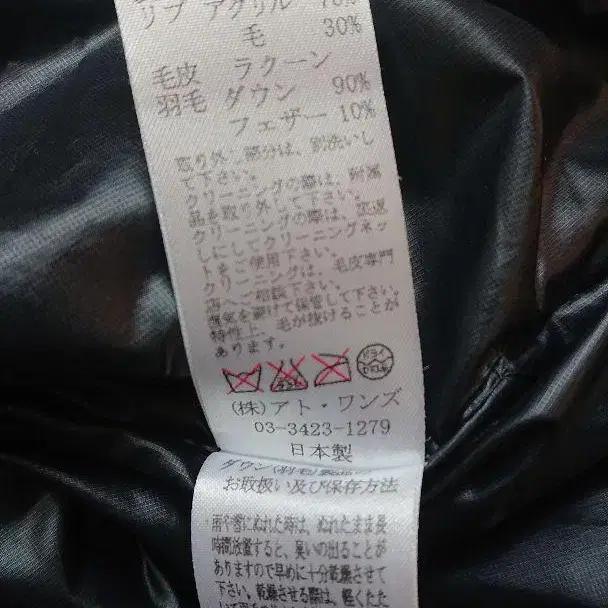 リブ アクリル 70%
毛 30%
毛皮 ラクーン
羽毛 ダウン 90%
フェザー 10%
取り外し部分は、別洗いし
て下さい。
クリーニングの際は、附属
品を取り外して下さい。
クリーニングの際は、裏返
しにしてクリーニングネッ
トをご使用下さい。
クリーニングは、毛皮専門
店へご相談下さい。
湿気を避けて保管して下さい。
特性上、毛が抜けることが
あります。
ドライ
(株)アト・ワンズ
03-3423-1279
日本製
ダウン(羽毛)製品の
お取扱い及び保存方法
雨や雪にぬれた時は、ぬれたまま長
時間放置すると、臭いの出ることが
ありますので早めに十分乾燥させて
下さい。乾燥させる際は、軽くたた